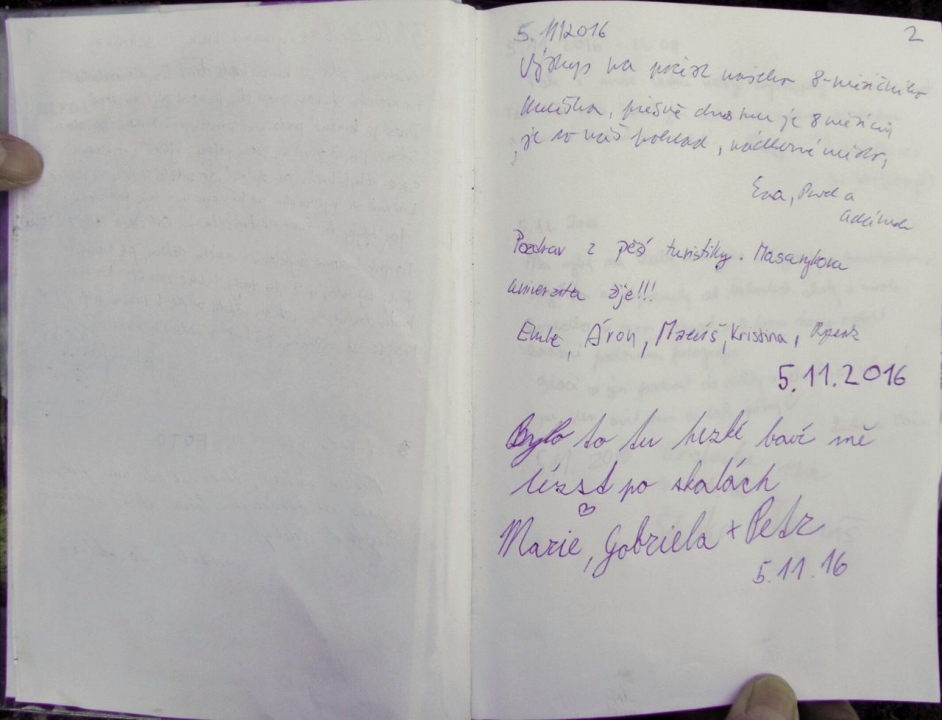 5. 11/2016
2
Výšlap na počest našeho 8-měsíčního
, přesně dnes mu je 8 měsíců,
je to váš poklad, nádherné místo,
Eva, Pavel a
Pozdrav z pěší turistiky. Masarykova
univerzita žije!!!
Áron, Matúš, Kristína,
5.11.2016
Bylo to tu hezké baví mě
lézst po skalách
Marie, Gabriela + Petr
5.11.16